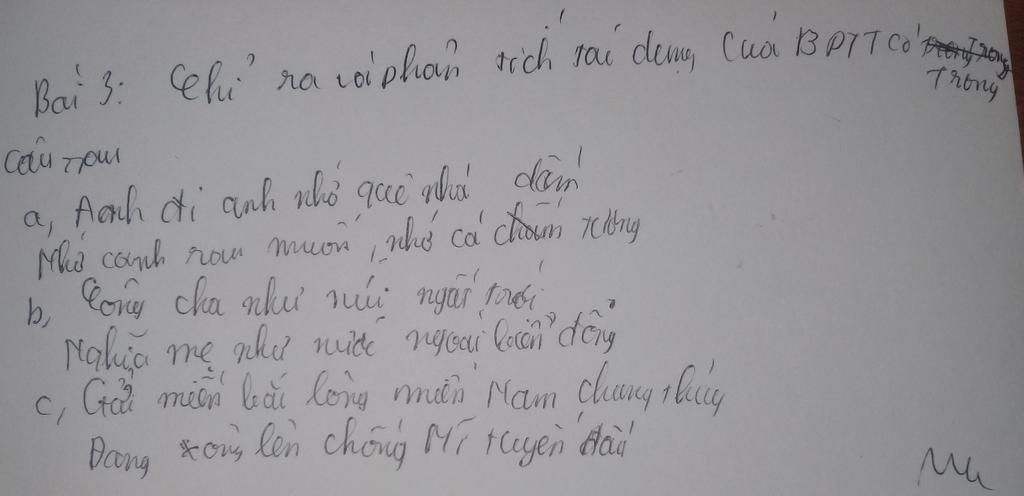 Bài 3: Chỉ ra và phân tích tác dụng của BPTT có
Trong
câu sau
a, Anh đi anh nhớ quê nhà
Nhớ canh rau muốn, nhớ cà dầm tương
b, Công cha như núi ngất trời
Nghĩa mẹ như nước ngoài biển đông
c, Gửi miền bắc lòng miền Nam chung thủy
Đang xông lên chống Mĩ tuyến đầu